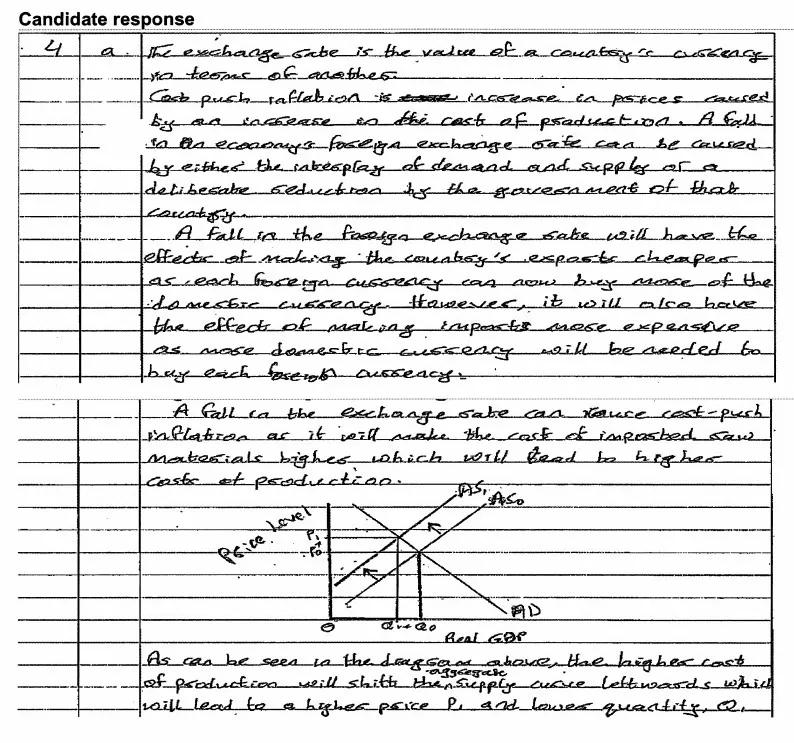 Candidate response
4 a. The exchange rate is the value of a country's currency
in terms of another.
Cost push inflation is increase in prices caused
by an increase in the cost of production. A fall
in an economy's foreign exchange rate can be caused
by either the interplay of demand and supply or a
deliberate reduction by the government of that
country.
A fall in the foreign exchange rate will have the
effects of making the country's exports cheaper
as each foreign currency can now buy more of the
domestic currency. However, it will also have
the effect of making imports more expensive
as more domestic currency will be needed to
buy each foreign currency.
A fall in the exchange rate can cause cost-push
inflation as it will make the cost of imported raw
materials higher which will lead to higher
costs of production.
AS1
AS0
Price Level
P1
P0
AD
O Q1 Q0
Real GDP
As can be seen in the diagram above, the higher cost
of production will shift the aggregate supply curve leftwards which
will lead to a higher price P1 and lower quantity, Q1